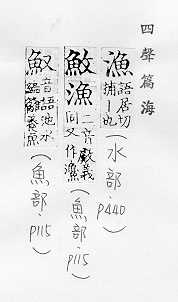 四聲篇海
漁 語居切捕｜也（水部·P440）
魰漁 二音獻義同又作漁（魚部·P115）
䰻 音語池水養魚（魚部·P115）